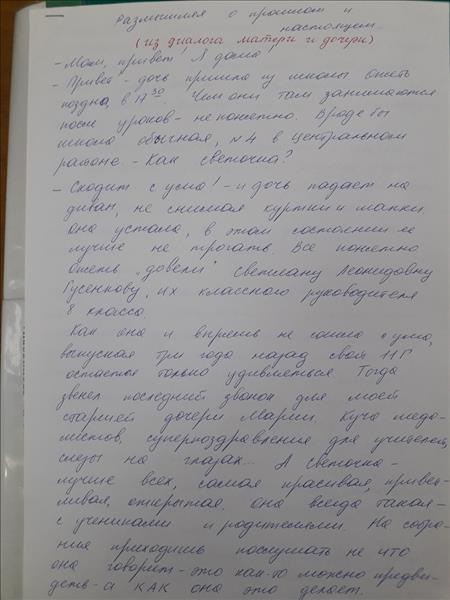 Размышляя о прошлом и
настоящем...
(из диалога матери и дочери)
- Мам, привет Я дома
- Привет - дочь пришла из школы опять
поздно, в 17 30. Чем они там занимаются
после уроков - не понятно. Вроде бы
школа обычная, №4 в Центральном
районе. - Как Светочка?
- Сходит с ума! - и дочь падает на
диван, не снимая куртки и шапки.
она устала, в этом состоянии её
лучше не трогать. Все понятно
опять „довели" Светлану Леонидовну
Гусенкову, их классного руководителя
8 класса.
Как она и впрямь не сошла с ума,
выпуская три года назад свой 11 Г
остается только удивляться. Тогда
звенел последний звонок для моей
старшей дочери Марии. Куча меда-
листов, суперпоздравления для учителей,
слезы на глазах... А Светочка -
лучше всех, самая красивая, привет-
ливая, открытая. она всегда такая -
с учениками и родителями. На собра-
ния приходишь послушать не что
она говорит - это как-то можно предви-
деть - а КАК она это делает.